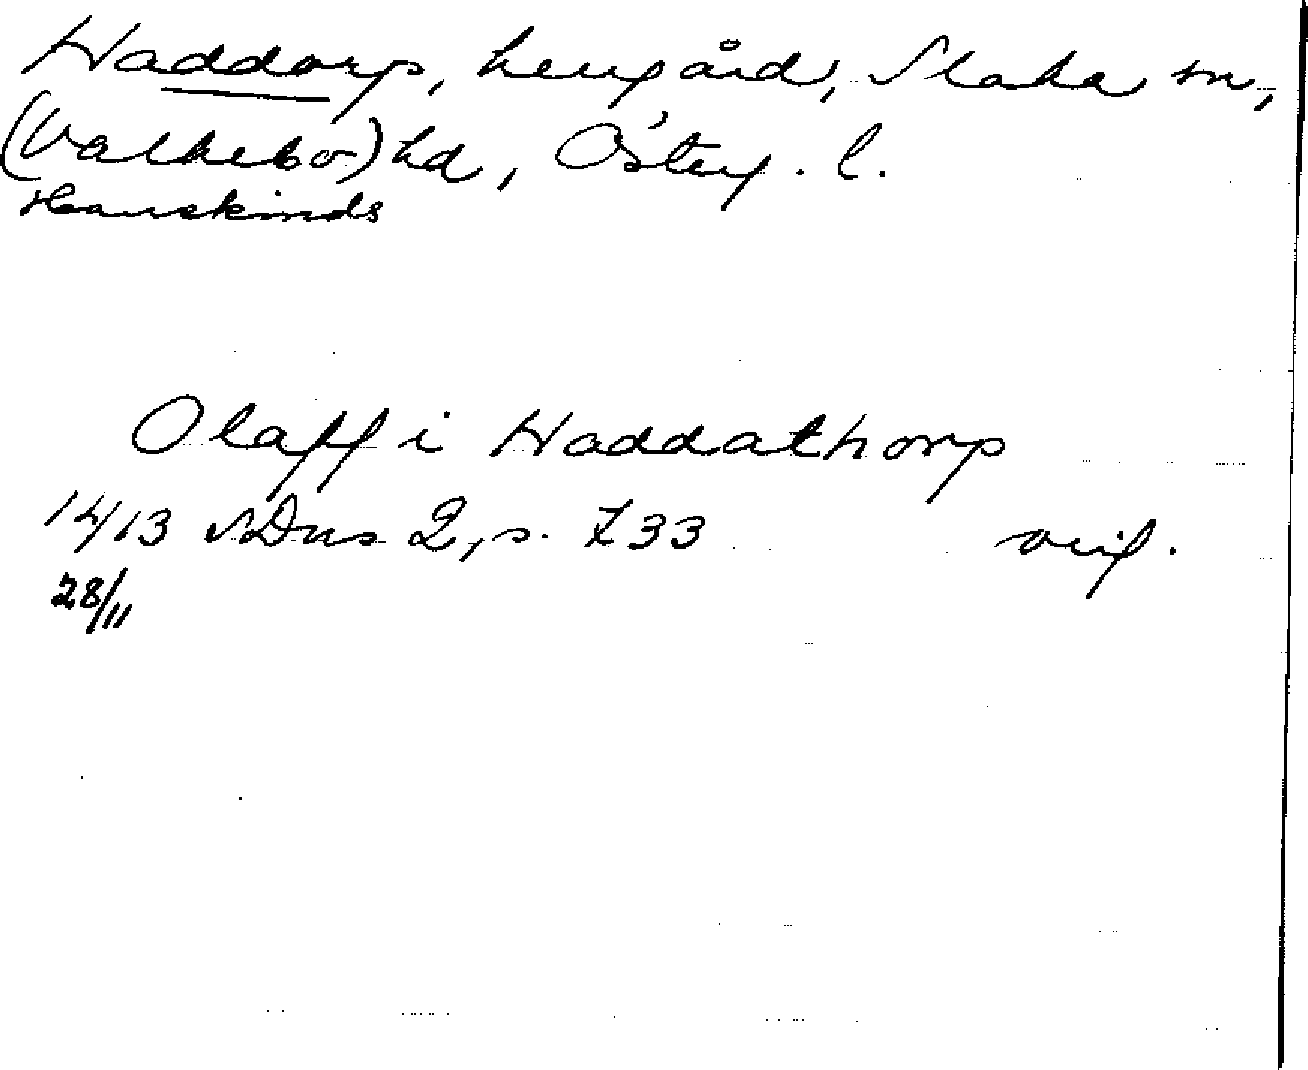 Haddorp, herrgård, Slaka sn,
(Valkebo) hd, Österg. l.
Hanekinds
Olaff i Haddathorp
1413 SDns 2, s. 733 orig.
28/11